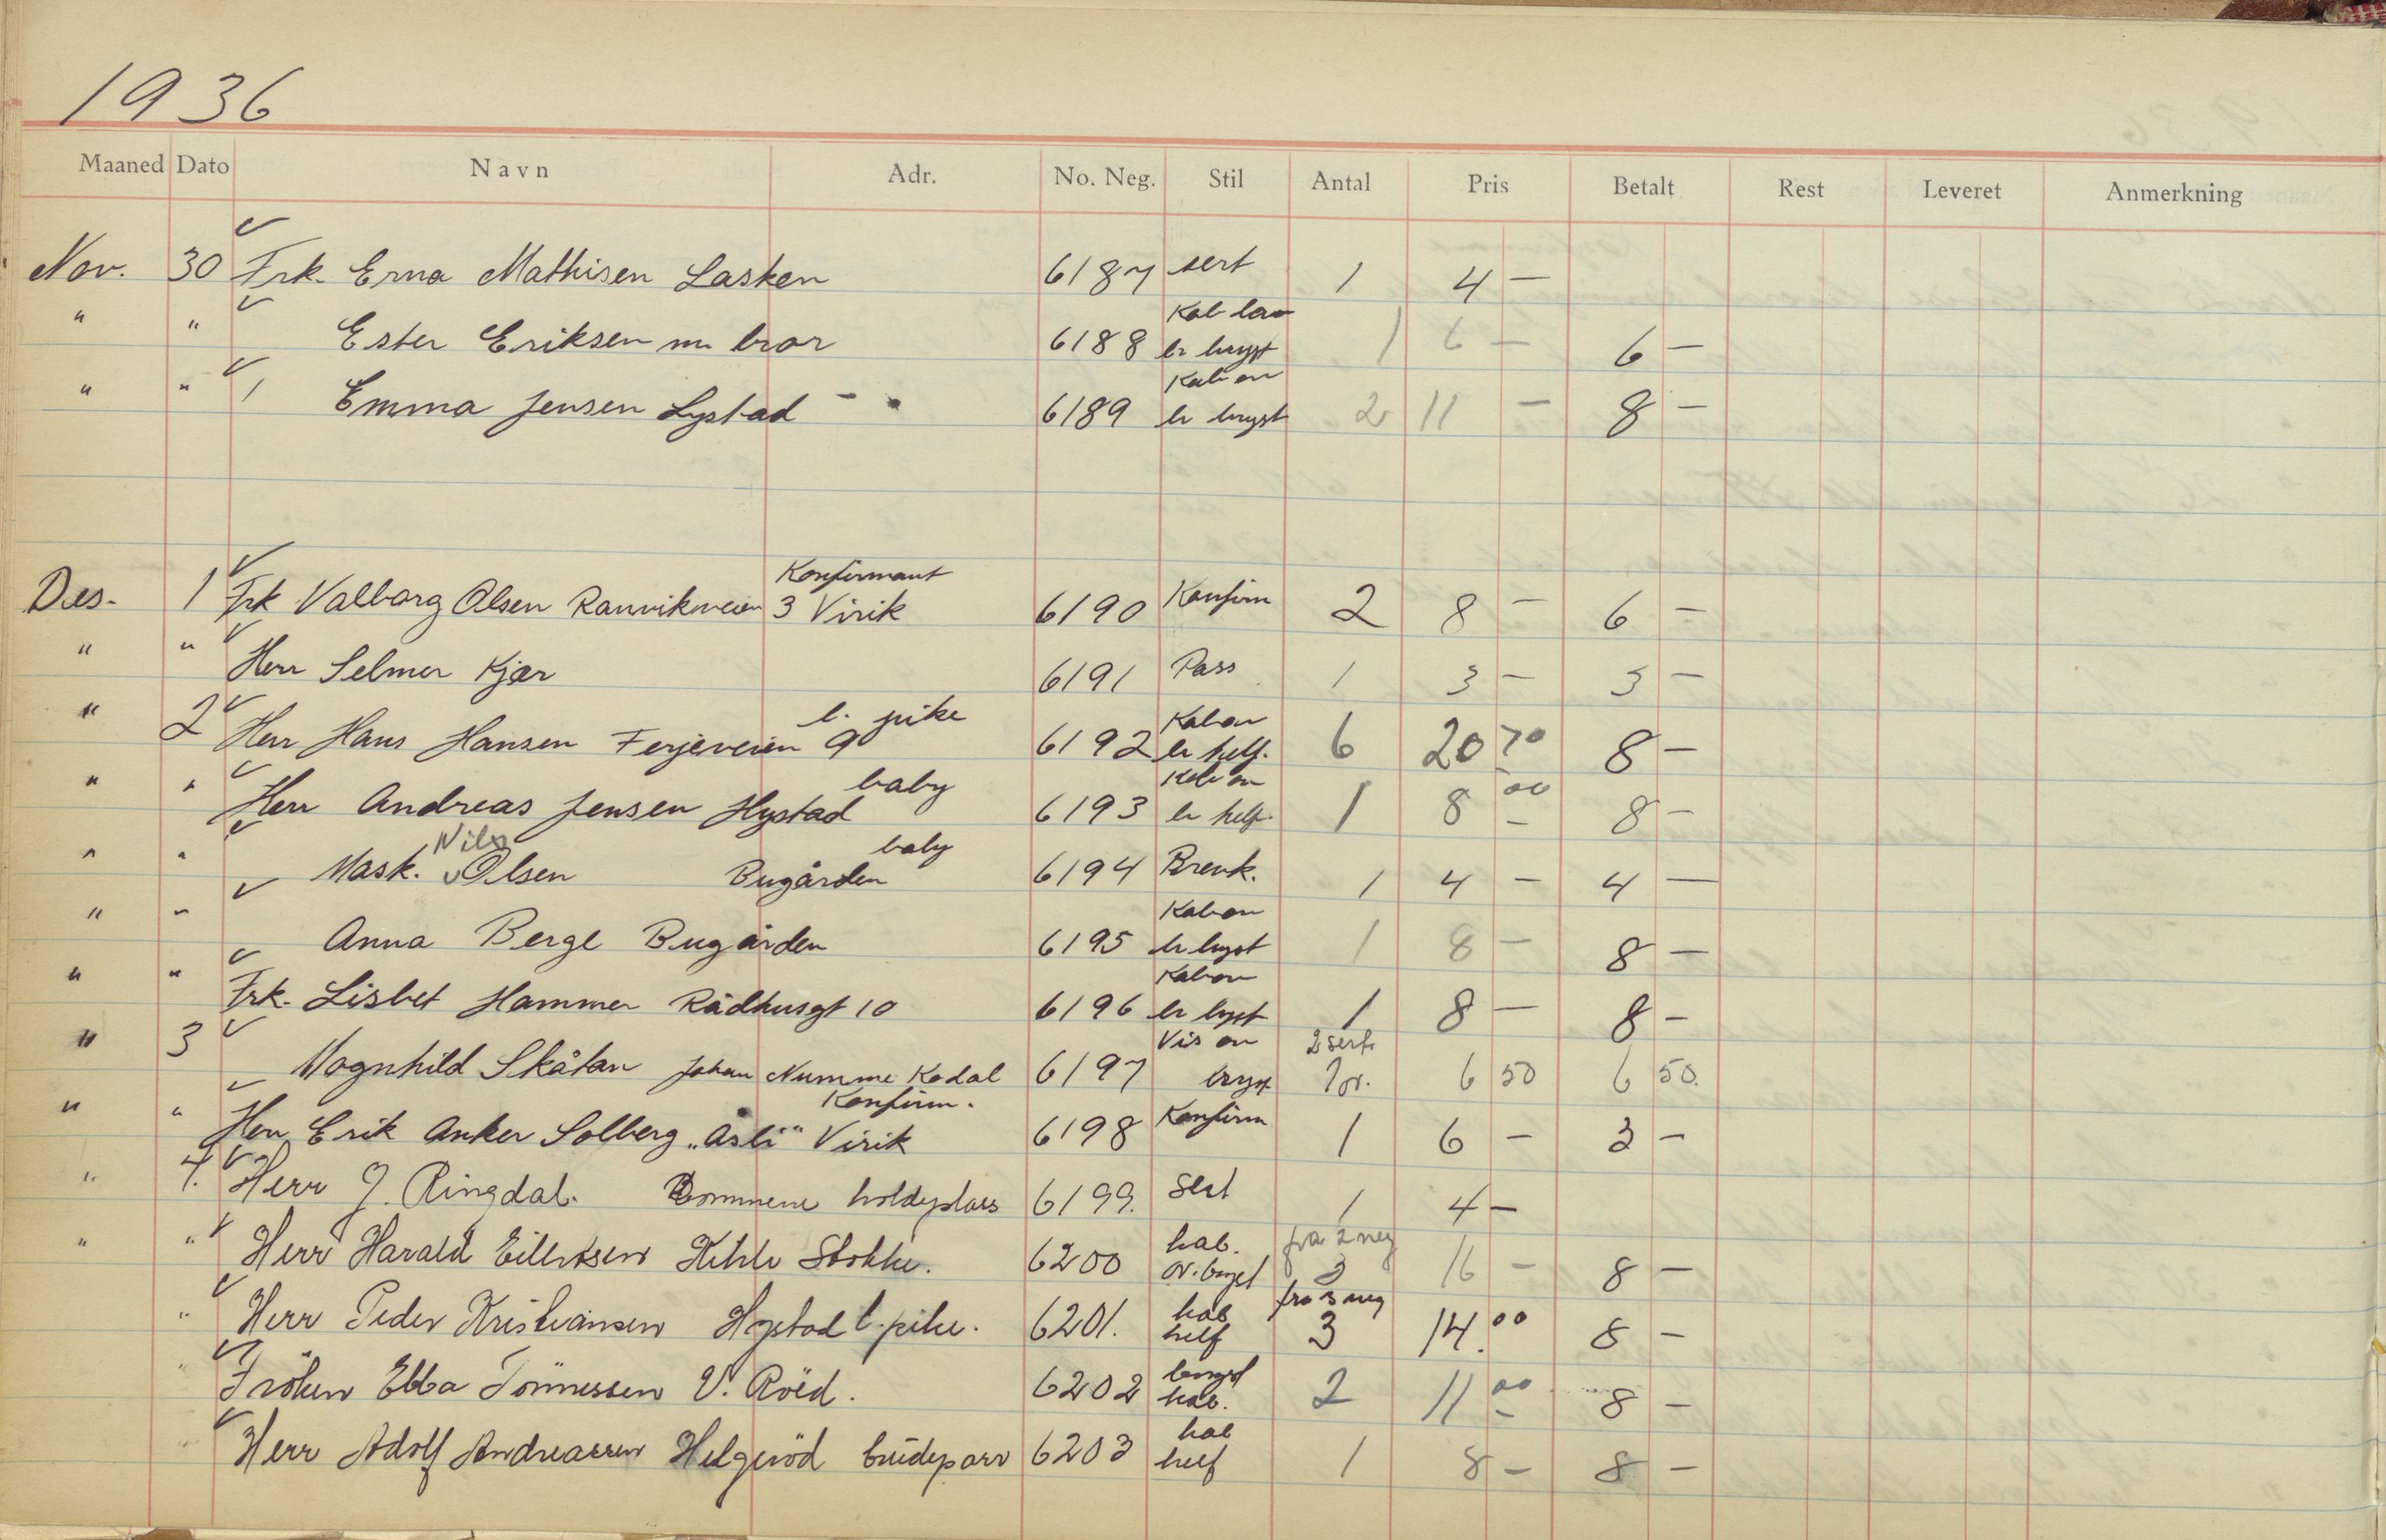 1936
Maaned Dato Navn Adr. No. Neg. Stil Antal Pris Betalt Rest Leveret Anmerkning
Nov. 30 Frk. Erna Mathisen Lasken 6187 sert 1 4 —
" " Ester Eriksen m bror 6188 Kab br bryst 1 6 — 6 —
" " Emma Jensen Lystad 6189 Kab or br bryst 2 11 — 8 —
Konfirmant
Des. 1 Frk Valborg Olsen Ranvikveien 3 Virik 6190 Konfirm 2 8 — 6 —
" " Herr Selmer Kjær 6191 Pass 1 3 — 3 —
" 2 Herr Hans Hansen Ferjeveien 9 l. pike 6192 Kab or br helf. 6 20 70 8 —
" " Herr Andreas Jensen Hystad baby 6193 Kab or br helf. 1 8 00 8 —
" " Mask. Nils Olsen Bugården baby 6194 Brevk. 1 4 — 4 —
" " Anna Berge Bugården 6195 Kab or br bryst 1 8 — 8 —
" " Frk. Lisbet Hammer Rådhusgt 10 6196 Kab or br bryst 1 8 — 8 —
" 3 Magnhild Skåtan Johan Numme Kodal 6197 Vis or bryst 2 sert. 1 or. 6 50 6 50.
" " Herr Erik Anker Solberg „Åsli" Virik Konfirm. 6198 Konfirm 1 6 — 3 —
" 4. Herr J. Ringdal. holdeplass 6199. Sert 1 4 —
" " Herr Harald Eilertsen Stokke. 6200 kab. or. bryst fra 2 neg 3 16 — 8 —
" Herr Peder Kristiansen Hystad l. pike. 6201. kab helf fra 3 neg 3 14.00 8 —
" Fröken Ebba Tönnessen V. Röed. 6202 bryst kab. 2 11 00 8 —
" Herr Adolf Andreassen Helgeröd brudepar 6203 kab helf 1 8 — 8 —